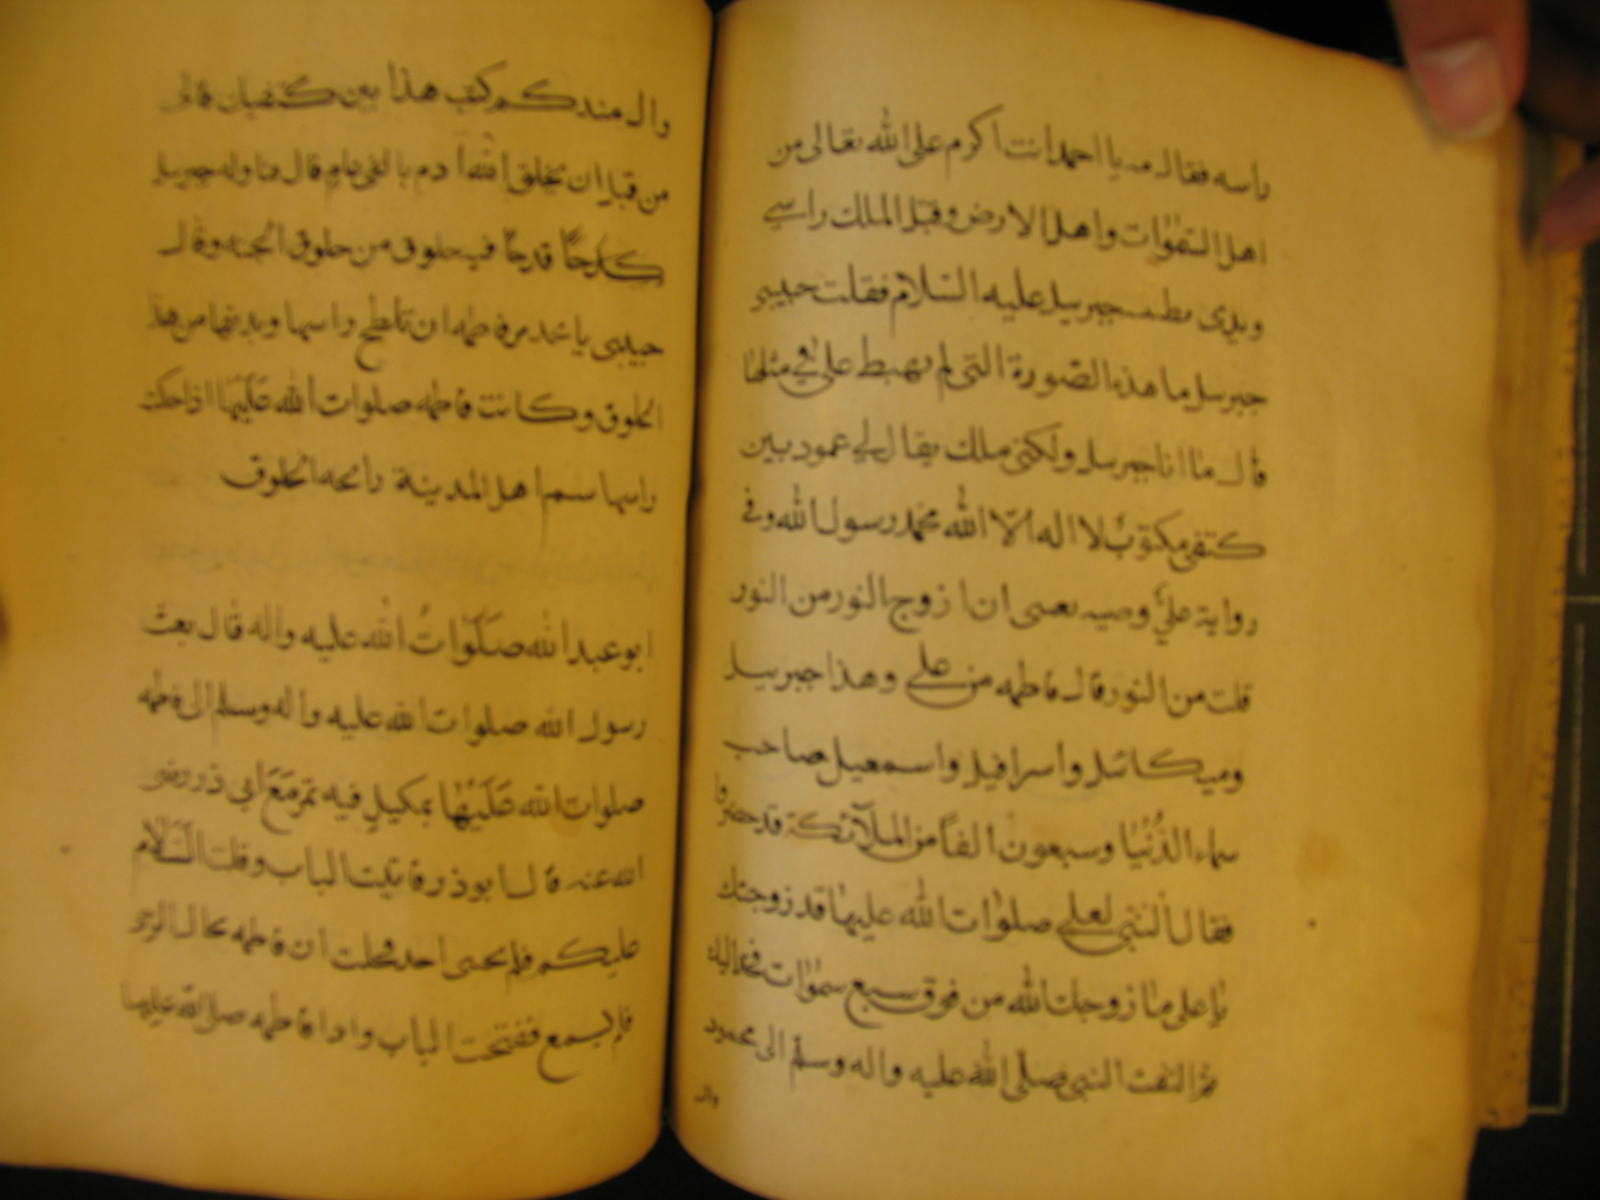 راسه فقال مه يا احمد انت اكرم على الله تعالى من
اهل السموات واهل الارض وقبل الملك راسي
ويدي جبرسل عليه السلام فقلت حبيبي
جبرسل ما هذه الصورة التي لم تهبط علي في مثلها
قال ما انا جبرسل ولكني ملك يقال لي عمود بين
كتفي مكتوب لا اله الا الله محمد رسول الله وفي
رواية علي وصيه بعثني ان ازوج النور من النور
قلت من النور قال فاطمه من علي وهذا جبرسل
وميكائيل واسرافيل واسمعيل صاحب
سماء الدنيا وسبعون الفا من الملآئكة قد حضروا
فقال النبي لعلي صلوات الله عليها قد زوجتك
يا علي ما زوجك الله من فوق سبع سموات فخذ اليك
ثم التفت النبي صلى الله عليه واله وسلم الى محمود
وال
وال منذ كم كتب هذا بين كتفيك قال
من قبل ان يخلق الله آدم بالفي عام قال فناوله جبرسل
قدحا فيه خلوق من خلوق الجنه وقال
حبيبي يا محمد مر فاطمه ان تلطخ راسها وبدنها من هذا
الخلوق وكانت فاطمه صلوات الله عليها اذا حكت
راسها شم اهل المدينة رائحه الخلوق
ابو عبد الله صلوات الله عليه واله قال بعث
رسول الله صلوات الله عليه واله وسلم الى فاطمه
صلوات الله عليها بمكيل فيه تمر مع ابي ذر رضي
الله عنه قال ابو ذر فاتيت الباب وقلت السلام
عليكم فلم يجبني احد فخلت ان فاطمه بحال الرحى
فلم يسمع ففتحت الباب واذا فاطمه صلى الله عليها